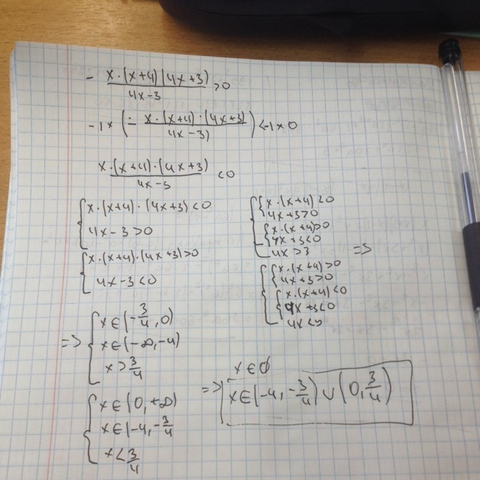 - x·(x+4)(4x+3) / 4x-3 > 0
-1 × (- x·(x+4)·(4x+3) / 4x-3) < -1 × 0
x·(x+4)·(4x+3) / 4x-3 < 0
{ x·(x+4)·(4x+3) < 0
4x-3 > 0
{ x·(x+4)·(4x+3) > 0
4x-3 < 0
{ { x·(x+4) < 0
4x+3 > 0
{ x·(x+4) > 0
4x+3 < 0
4x > 3
=>
{ { x·(x+4) > 0
4x+3 > 0
{ x·(x+4) < 0
4x+3 < 0
=> { x∈(-3/4, 0)
x∈(-∞, -4)
x > 3/4
{ x∈(0, +∞)
x∈(-4, -3/4
x < 3/4
x∈∅
=> x∈(-4, -3/4) ∪ (0, 3/4)